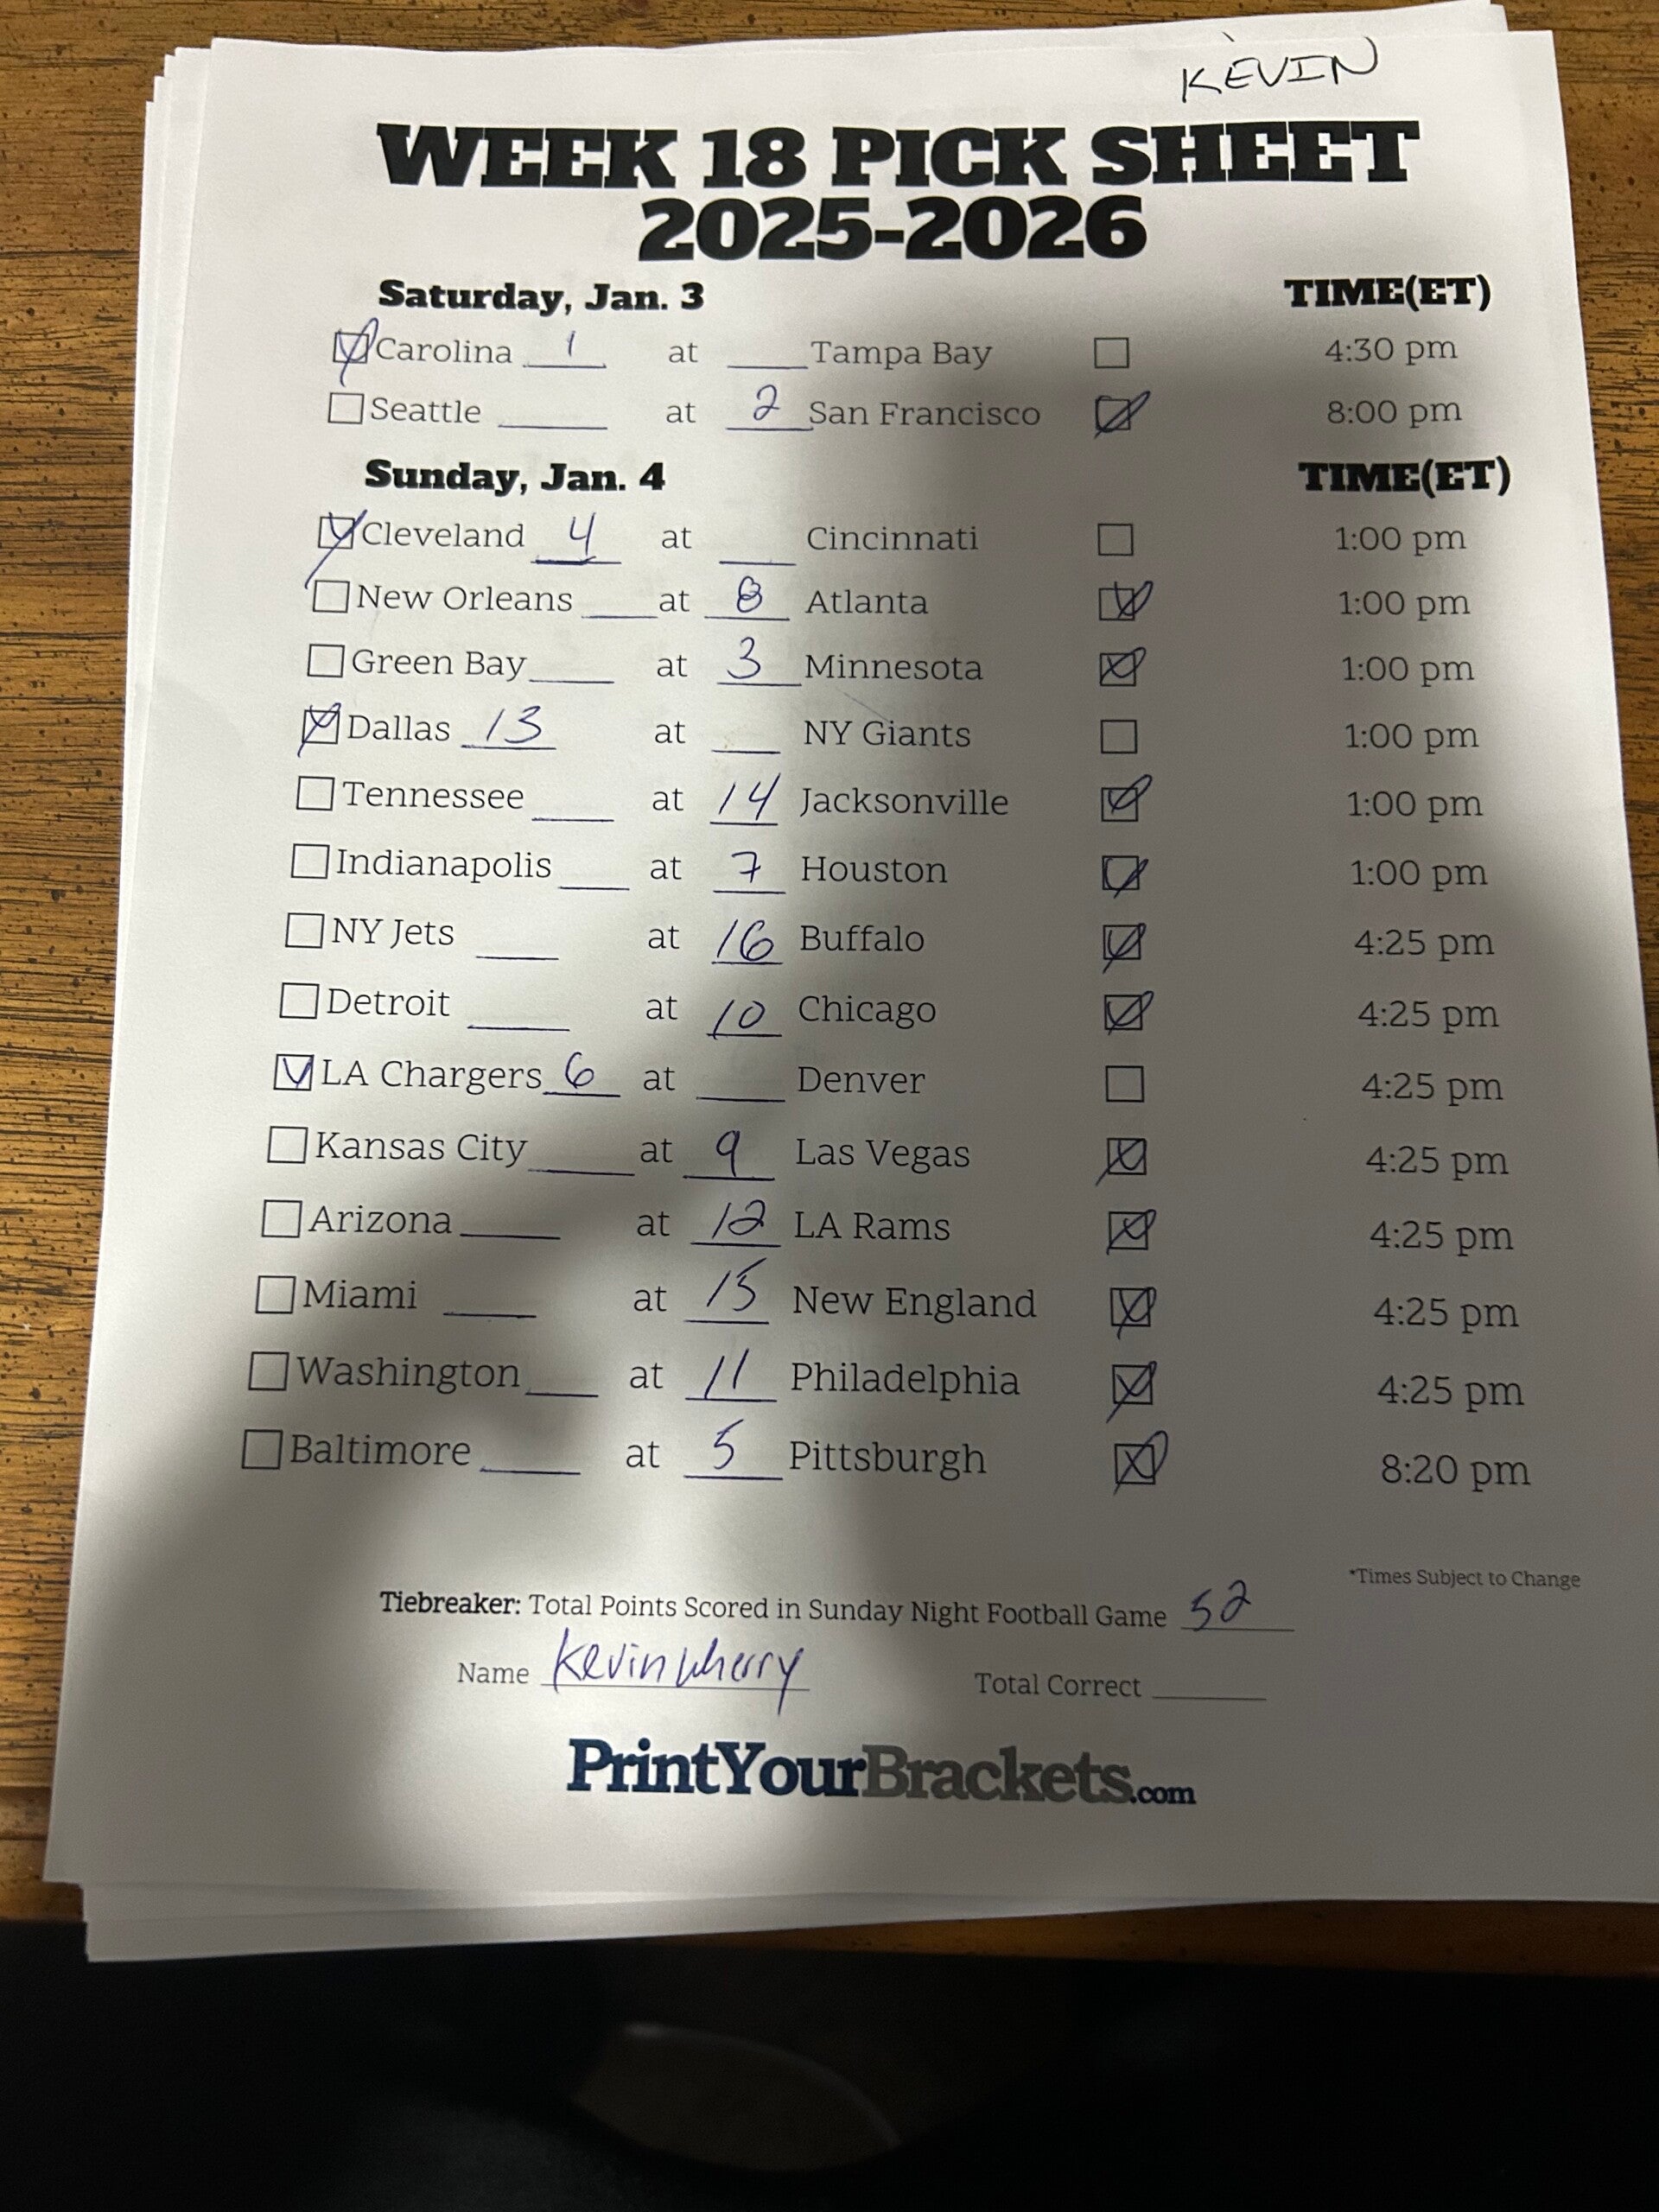 KEVIN
WEEK 18 PICK SHEET
2025-2026
Saturday, Jan. 3 TIME(ET)
Carolina 1 at Tampa Bay 4:30 pm
Seattle at 2 San Francisco 8:00 pm
Sunday, Jan. 4 TIME(ET)
Cleveland 4 at Cincinnati 1:00 pm
New Orleans at 8 Atlanta 1:00 pm
Green Bay at 3 Minnesota 1:00 pm
Dallas 13 at NY Giants 1:00 pm
Tennessee at 14 Jacksonville 1:00 pm
Indianapolis at 7 Houston 1:00 pm
NY Jets at 16 Buffalo 4:25 pm
Detroit at 10 Chicago 4:25 pm
LA Chargers 6 at Denver 4:25 pm
Kansas City at 9 Las Vegas 4:25 pm
Arizona at 12 LA Rams 4:25 pm
Miami at 15 New England 4:25 pm
Washington at 11 Philadelphia 4:25 pm
Baltimore at 5 Pittsburgh 8:20 pm
*Times Subject to Change
Tiebreaker: Total Points Scored in Sunday Night Football Game 52
Name Kevin Wherry Total Correct
PrintYourBrackets.com